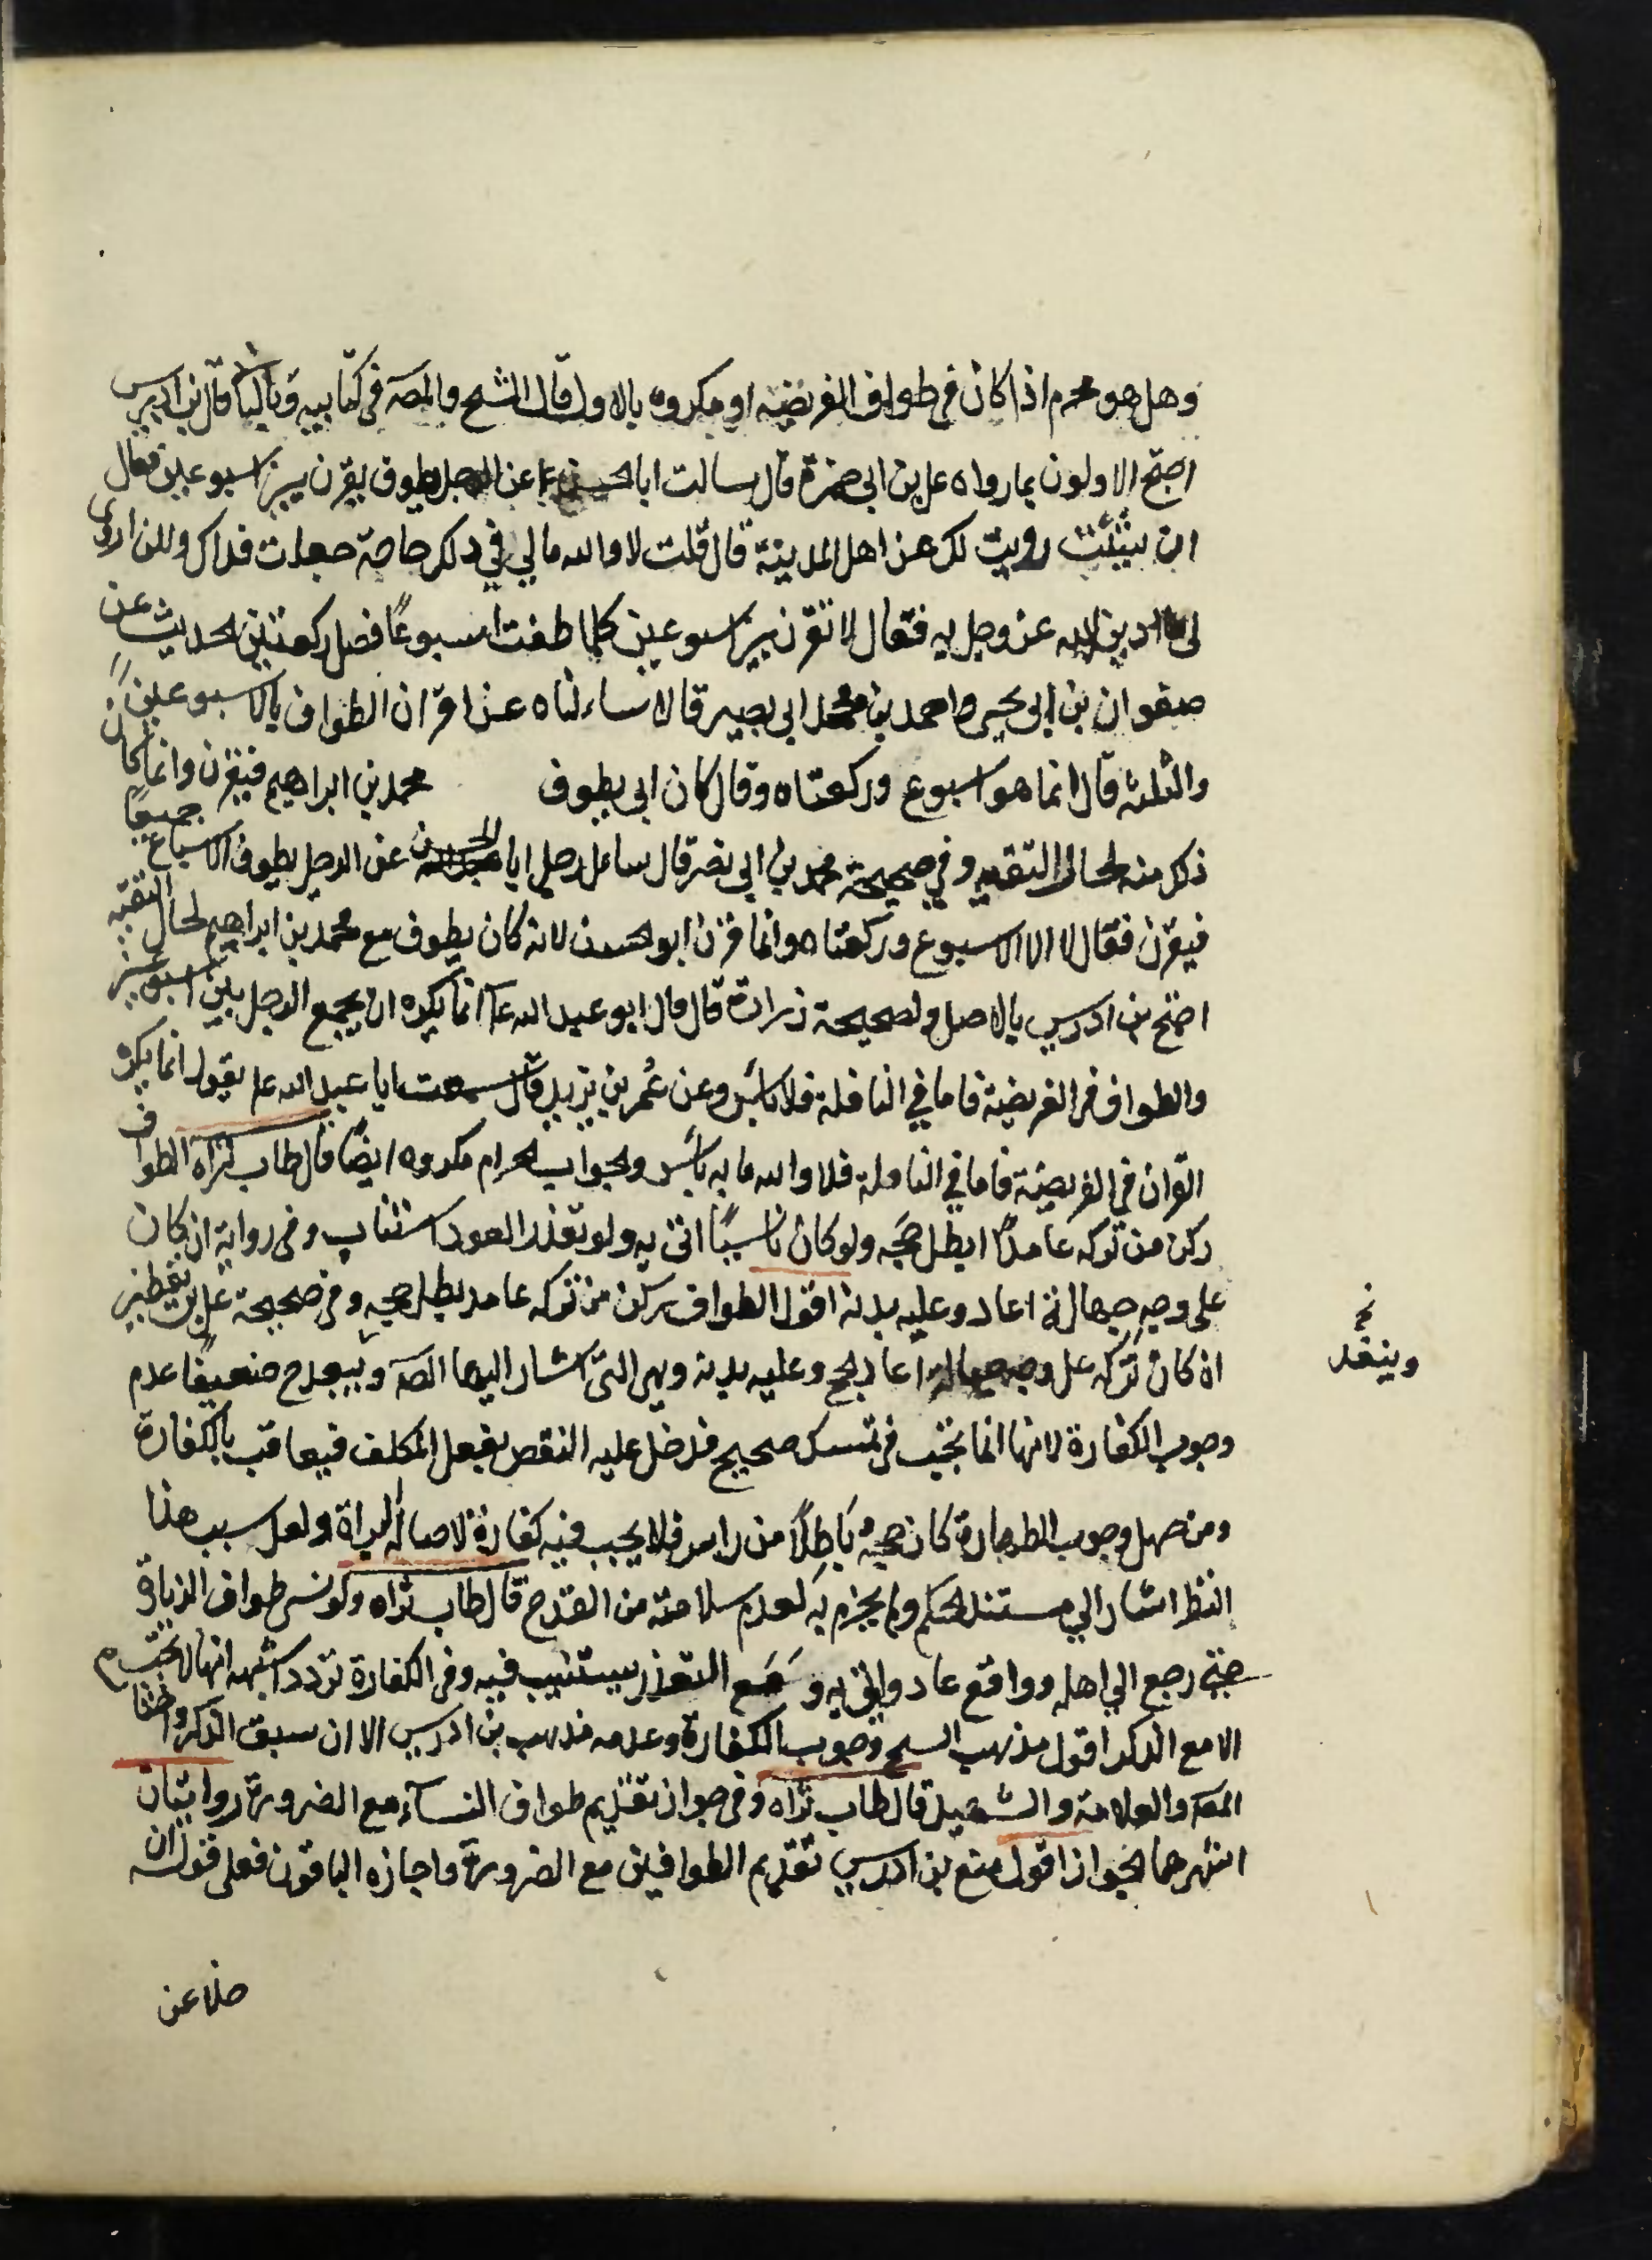 وهل هو محرم اذا كان في طواف الفريضة او مكروه بالاول قال الشيخ والمصه في كتابيه وبالثاني قال بن ادريس
احتج الاولون بما رواه علي بن ابي حمزة قال سالت ابا الحسن ع عن الرجل يطوف يقرن بين اسبوعين فقال
ان شئت رويت لك عن اهل المدينة قال قلت لا والله مالي في ذلك حاجة جعلت فداك ولكن اروى
لي ما ادين الله عز وجل به فقال لا تقرن بين اسبوعين كلما طفت اسبوعًا فصل ركعتين الحديث عن
صفوان بن ابي يحيى واحمد بن محمد ابي بصير قالا سالناه عن اقران الطواف بالاسبوعين
والثلثة قال انما هو اسبوع وركعتاه وقال كان ابي يطوف محمد بن ابراهيم فيقرن وانما كان
ذلك منه لحال التقيه وفي صحيحة محمد بن ابي نصر قال سائل رجل ابا الحسن عن الرجل يطوف الاسباع جميعًا
فيقرن فقال لا الا الاسبوع وركعتاه وانما قرن ابو الحسن لانه كان يطوف مع محمد بن ابراهيم لحال التقيه
احتج بن ادريس بالاصل ولصحيحة زرارة قال قال ابو عبد الله ع انما يكره ان يجمع الرجل بين اسبوعين
والطواف في الفريضة فاما في النافلة فلا باس وعن عمر بن يزيد قال سمعت ابا عبد الله ع يقول انما يكره
القران في الفريضة فاما في النافلة فلا والله ما به باس والجواب الحرام مكروه ايضًا قال طاب ثراه الطواف
ركن من تركه عامدًا ابطل حجه ولو كان ناسيًا اتى به ولو تعذر العود استناب وفي رواية ان كان
على وجه جهالة اعاد وعليه بدنة اقول الطواف ركن من تركه عامد بطل حجه وفي صحيحة علي بن يقطين
ان كان تركه على وجه جهالة اعاد الحج وعليه بدنة وهي التي اشار اليها المصه ويبعد ح ضعيفًا عدم
وجوب الكفارة لانها انما تجب في تمسك صحيح فدخل عليه النقص بفعل المكلف فيعاقب بالكفارة
ومن جهل وجوب الطهارة كان حجه باطلًا من راس فلا يجب فيه كفارة لاصالة البراة ولعل سبب هذا
النظر اشار الي مستند الحكم ولم يجزم به لعدم سلامته من القدح قال طاب ثراه ولو نسي طواف الزيارة
حتى رجع الي اهله وواقع عاد واتي به ومع التعذر يستنيب فيه وفي الكفارة تردد اشبهه انها لا تجب
الا مع الذكر اقول مذهب الشيخ وجوب الكفارة وعدمه مذهب بن ادريس الا ان سبق الذكر واختاره
المصه والعلامة والشهيد قال طاب ثراه وفي جواز تقديم طواف النسآء مع الضرورة روايتان
اشهرهما الجواز اقول منع بن ادريس تقديم الطوافين مع الضرورة واجازه الباقون فعلى قوله ان
نخ
وينفد